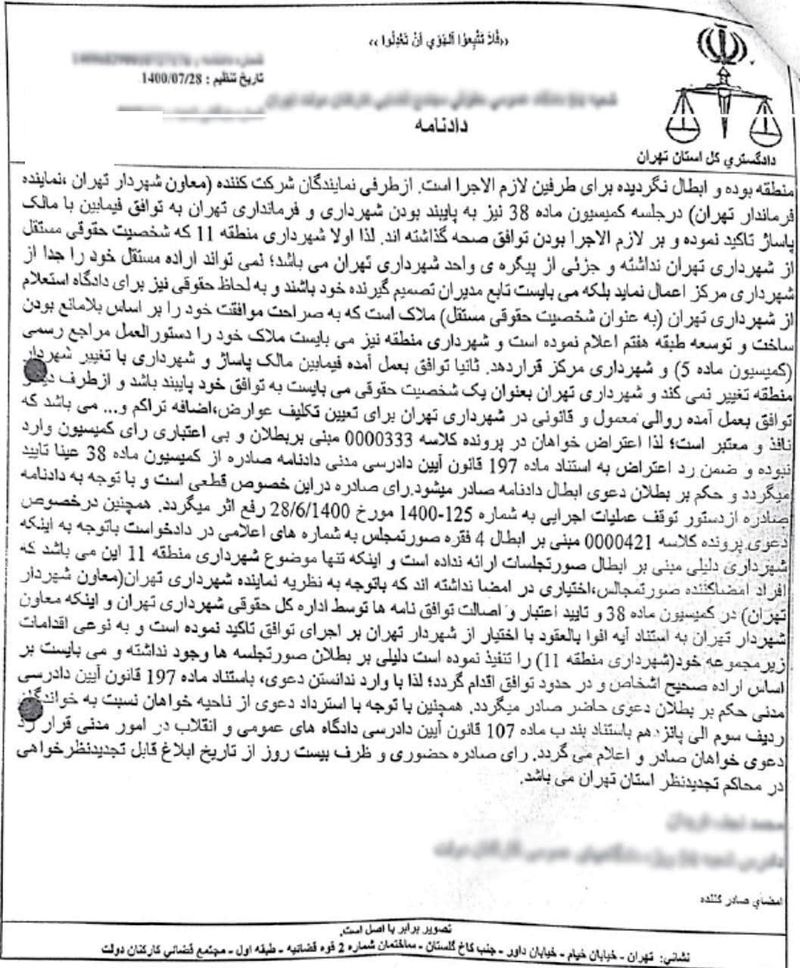 «فَلا تَتَّبِعُوا الْهَوي أَنْ تَعْدِلُوا»
تاریخ تنظیم : 1400/07/28
دادنامه
دادگستري کل استان تهران
منطقه بوده و ابطال نگردیده برای طرفین لازم الاجرا است. ازطرفی نمایندگان شرکت کننده (معاون شهردار تهران ،نماینده
فرماندار تهران) درجلسه کمیسیون ماده 38 نیز به پایبند بودن شهرداری و فرمانداری تهران به توافق فیمابین با مالک
پاساژ تاکید نموده و بر لازم الاجرا بودن توافق صحه گذاشته اند. لذا اولا شهرداری منطقه 11 که شخصیت حقوقی مستقل
از شهرداری تهران نداشته و جزئی از پیکره ی واحد شهرداری تهران می باشد؛ نمی تواند اراده مستقل خود را جدا از
شهرداری مرکز اعمال نماید بلکه می بایست تابع مدیران تصمیم گیرنده خود باشند و به لحاظ حقوقی نیز برای دادگاه استعلام
از شهرداری تهران (به عنوان شخصیت حقوقی مستقل) ملاک است که به صراحت موافقت خود را بر اساس بلامانع بودن
ساخت و توسعه طبقه هفتم اعلام نموده است و شهرداری منطقه نیز می بایست ملاک خود را دستورالعمل مراجع رسمی
(کمیسیون ماده 5) و شهرداری مرکز قراردهد. ثانیا توافق بعمل آمده فیمابین مالک پاساژ و شهرداری با تغییر شهردار
منطقه تغییر نمی کند و شهرداری تهران بعنوان یک شخصیت حقوقی می بایست به توافق خود پایبند باشد و ازطرف
توافق بعمل آمده روالی معمول و قانونی در شهرداری تهران برای تعیین تکلیف عوارض،اضافه تراکم و... می باشد که
نافذ و معتبر است؛ لذا اعتراض خواهان در پرونده کلاسه 0000333 مبنی بربطلان و بی اعتباری رای کمیسیون وارد
نبوده و ضمن رد اعتراض به استناد ماده 197 قانون آیین دادرسی مدنی دادنامه صادره از کمیسیون ماده 38 عینا تایید
میگردد و حکم بر بطلان دعوی ابطال دادنامه صادر میشود.رای صادره دراین خصوص قطعی است و با توجه به دادنامه
صادره ازدستور توقف عملیات اجرایی به شماره 125-1400 مورخ 28/6/1400 رفع اثر میگردد. همچنین درخصوص
دعوی پرونده کلاسه 0000421 مبنی بر ابطال 4 فقره صورتمجلس به شماره های اعلامی در دادخواست باتوجه به اینکه
شهرداری دلیلی مبنی بر ابطال صورتجلسات ارائه نداده است و اینکه تنها موضوع شهرداری منطقه 11 این می باشد که
افراد امضاکننده صورتمجالس،اختیاری در امضا نداشته اند که باتوجه به نظریه نماینده شهرداری تهران(معاون شهردار
تهران) در کمیسیون ماده 38 و تایید اعتبار و اصالت توافق نامه ها توسط اداره کل حقوقی شهرداری تهران و اینکه معاون
شهردار تهران به استناد آیه افوا بالعقود با اختیار از شهردار تهران بر اجرای توافق تاکید نموده است و به نوعی اقدامات
زیرمجموعه خود(شهرداری منطقه 11) را تنفیذ نموده است دلیلی بر بطلان صورتجلسه ها وجود نداشته و می بایست بر
اساس اراده صحیح اشخاص و در حدود توافق اقدام گردد؛ لذا با وارد ندانستن دعوی، باستناد ماده 197 قانون آیین دادرسی
مدنی حکم بر بطلان دعوی حاضر صادر میگردد. همچنین با توجه با استرداد دعوی از ناحیه خواهان نسبت به خواندگان
ردیف سوم الی پانزدهم باستناد بند ب ماده 107 قانون آیین دادرسی دادگاه های عمومی و انقلاب در امور مدنی قرار رد
دعوی خواهان صادر و اعلام می گردد. رای صادره حضوری و ظرف بیست روز از تاریخ ابلاغ قابل تجدیدنظرخواهی
در محاکم تجدیدنظر استان تهران می باشد.
امضاي صادر کننده
تصویر برابر با اصل است.
نشاني: تهران - خیابان خیام - خیابان داور - جنب کاخ گلستان - ساختمان شماره 2 قوه قضائیه - طبقه اول - مجتمع قضائي کارکنان دولت